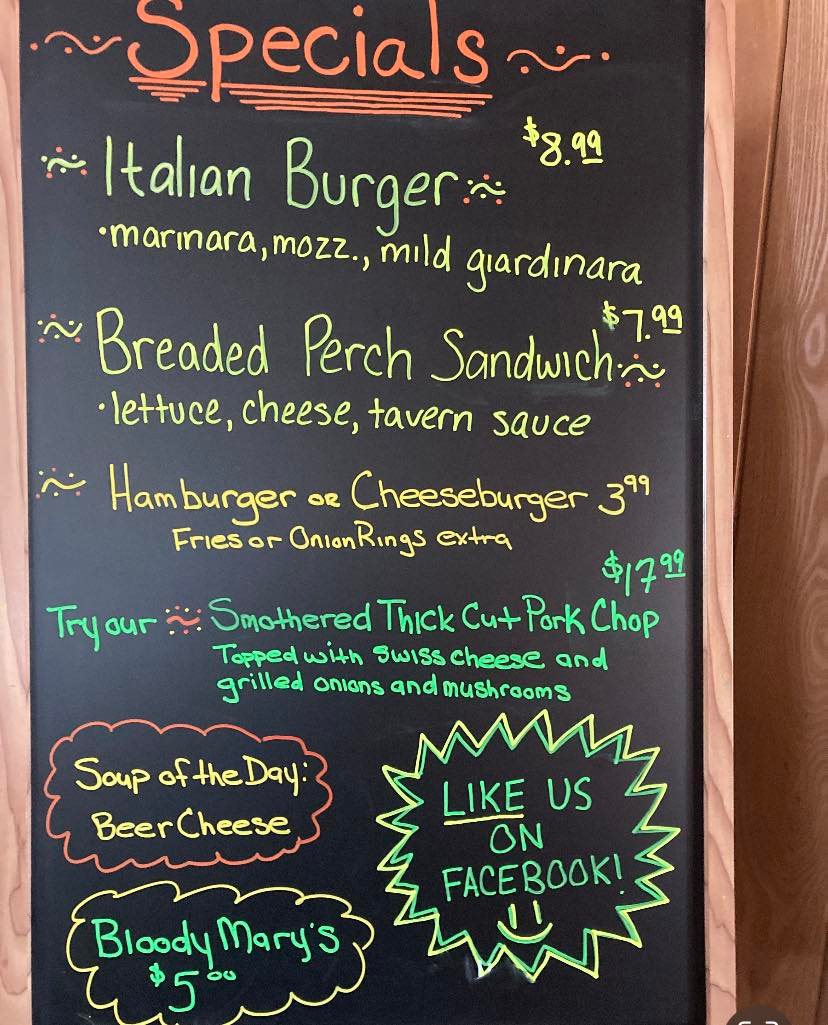 Specials
$8.99
Italian Burger
•marinara, mozz., mild giardinara
$7.99
Breaded Perch Sandwich
•lettuce, cheese, tavern sauce
Hamburger or Cheeseburger 3 99
Fries or Onion Rings extra
$17 99
Try our Smothered Thick Cut Pork Chop
Topped with swiss cheese and
grilled onions and mushrooms
Soup of the Day:
Beer Cheese
LIKE US
ON
FACEBOOK!
Bloody Mary's
$5 00